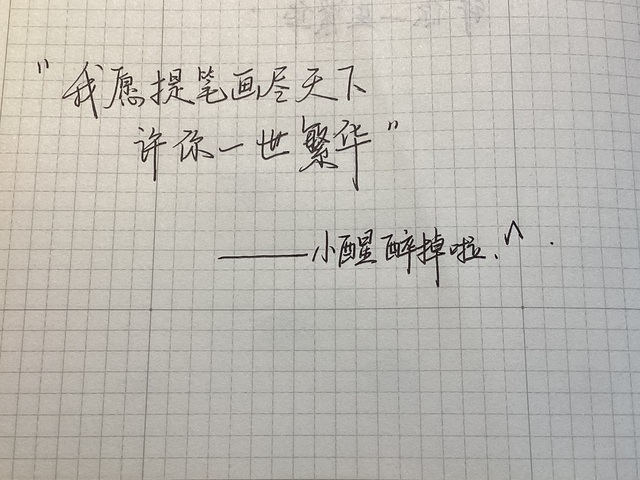 "我愿提笔画尽天下
许你一世繁华"
——小醒醉掉啦.^.